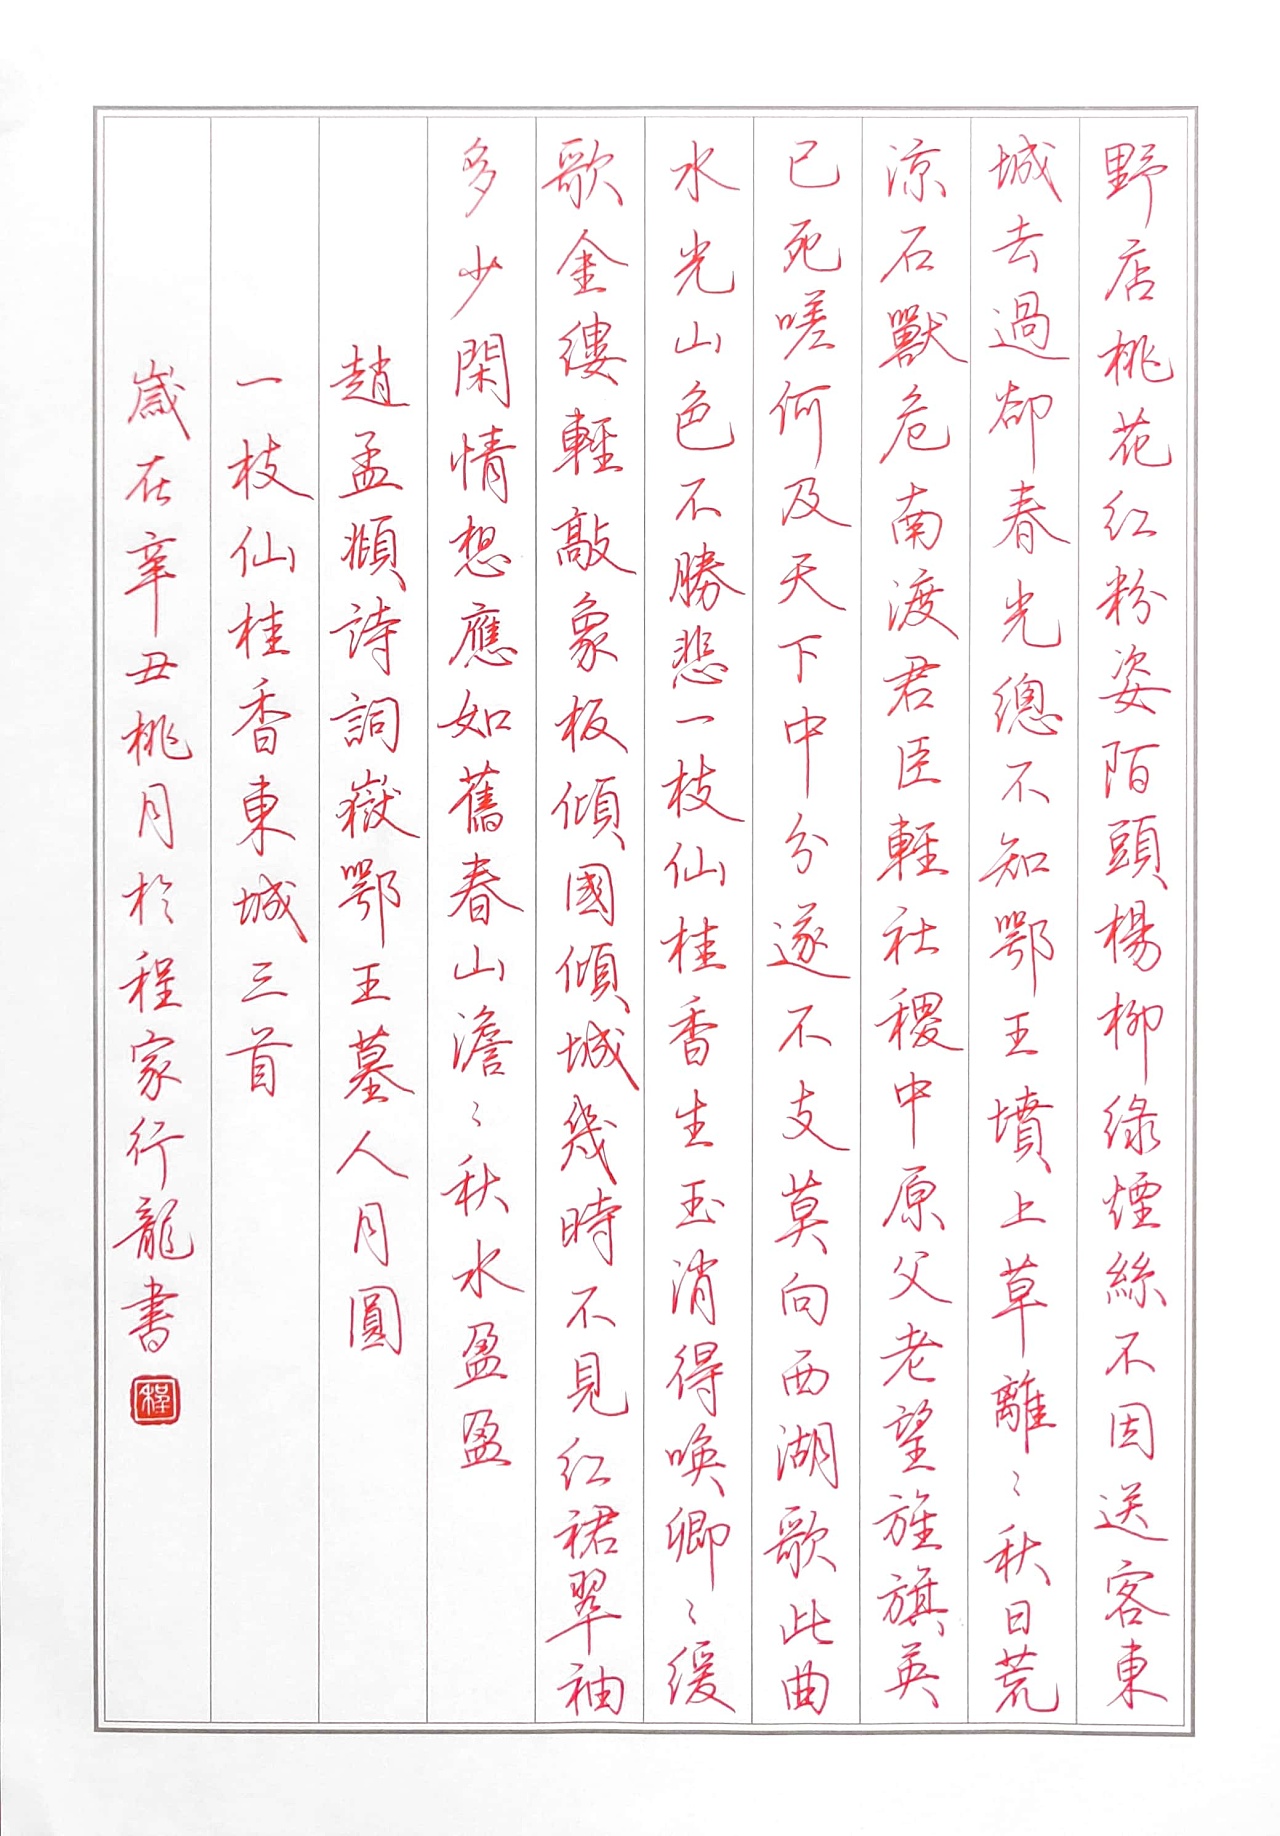 野店桃花紅粉姿陌頭楊柳綠煙絲不因送客東
城去過卻春光總不知鄂王墳上草離〻秋日荒
涼石獸危南渡君臣輕社稷中原父老望旌旗英
已死嗟何及天下中分遂不支莫向西湖歌此曲
水光山色不勝悲一枝仙桂香生玉消得喚卿〻緩
歌金縷輕敲象板傾國傾城幾時不見紅裙翠袖
多少閑情想應如舊春山澹〻秋水盈盈
趙孟頫詩詞嶽鄂王墓人月圓
一枝仙桂香東城三首
歲在辛丑桃月於程家行龍書
程